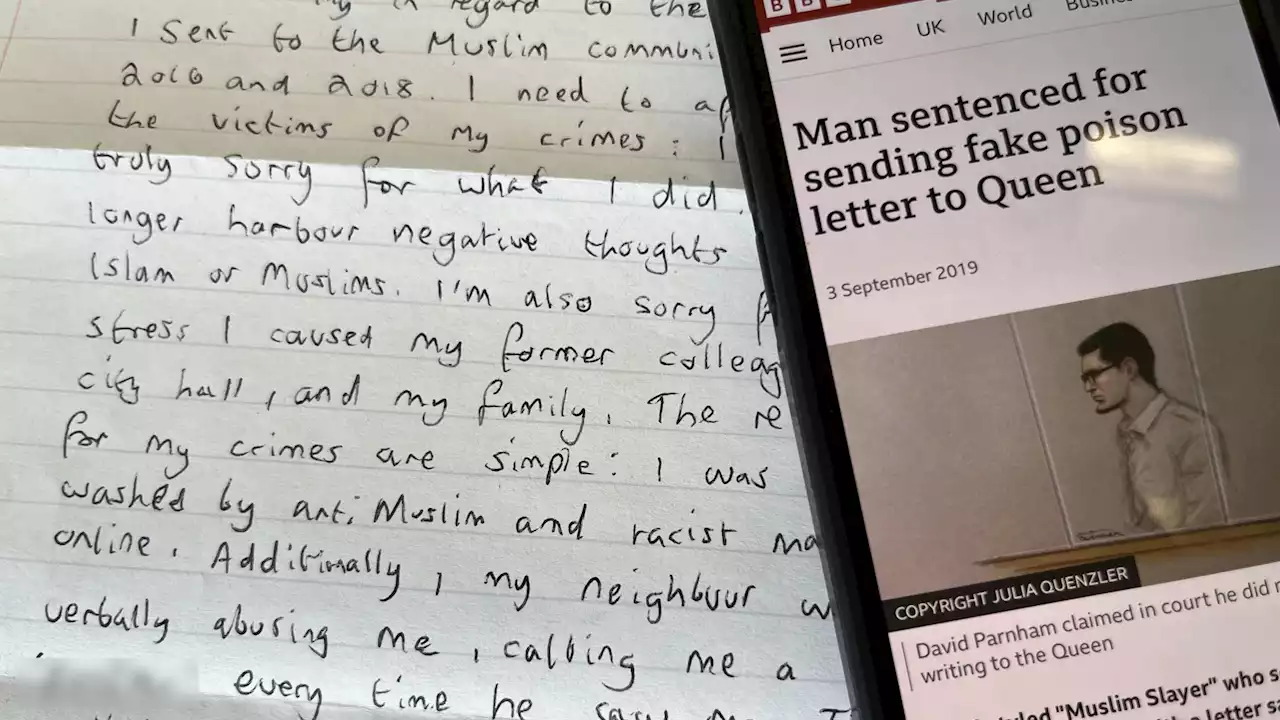 in regard to the
I sent to the Muslim communi
2016 and 2018. I need to
the victims of my crimes: I
truly sorry for what I did.
longer harbour negative thoughts
Islam or Muslims. I'm also sorry
stress I caused my former colleag
city hall, and my family. The re
for my crimes are simple: I was
washed by anti Muslim and racist ma
online. Additionally, my neighbour w
verbally abusing me, calling me a
every time he saw
BBC
Home UK World Busine
Man sentenced for
sending fake poison
letter to Queen
3 September 2019
COPYRIGHT JULIA QUENZLER
David Parnham claimed in court he did
writing to the Queen
"Muslim Slayer" who s
letter sa